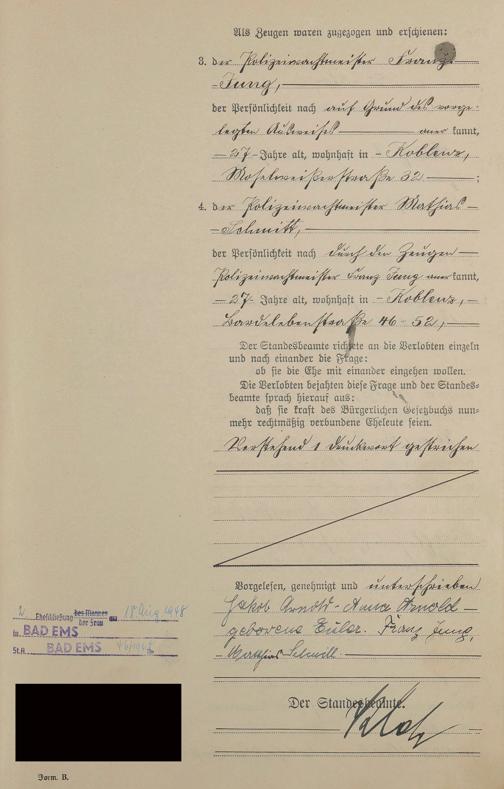 Als Zeugen waren zugezogen und erschienen:
3. der Polizeiwachtmeister Franz
Jung,
der Persönlichkeit nach auf Grund des vorge-
legten Ausweises kannt,
27 Jahre alt, wohnhaft in Koblenz,
Moselweißerstraße 32 ;
4. der Polizeiwachtmeister Mathias
Schmitt,
der Persönlichkeit nach durch den Zeugen
Polizeiwachtmeister Franz Jung kannt,
27 Jahre alt, wohnhaft in Koblenz,
Bardelebenstraße 46-52,
Der Standesbeamte richtete an die Verlobten einzeln
und nach einander die Frage:
ob sie die Ehe mit einander eingehen wollen.
Die Verlobten bejahten diese Frage und der Standes-
beamte sprach hierauf aus:
daß sie kraft des Bürgerlichen Gesetzbuchs nun-
mehr rechtmäßig verbundene Eheleute seien.
Vorstehend 1 Druckwort gestrichen
Vorgelesen, genehmigt und unterschrieben
Jakob Arnold - Anna Arnold
geborene Franz Jung,
Matthias Schmitt.
Der Standesbeamte.
2 Eheschließung des Mannes der Frau am 18 Aug 1948
in BAD EMS
St.A. BAD EMS
Form. B.